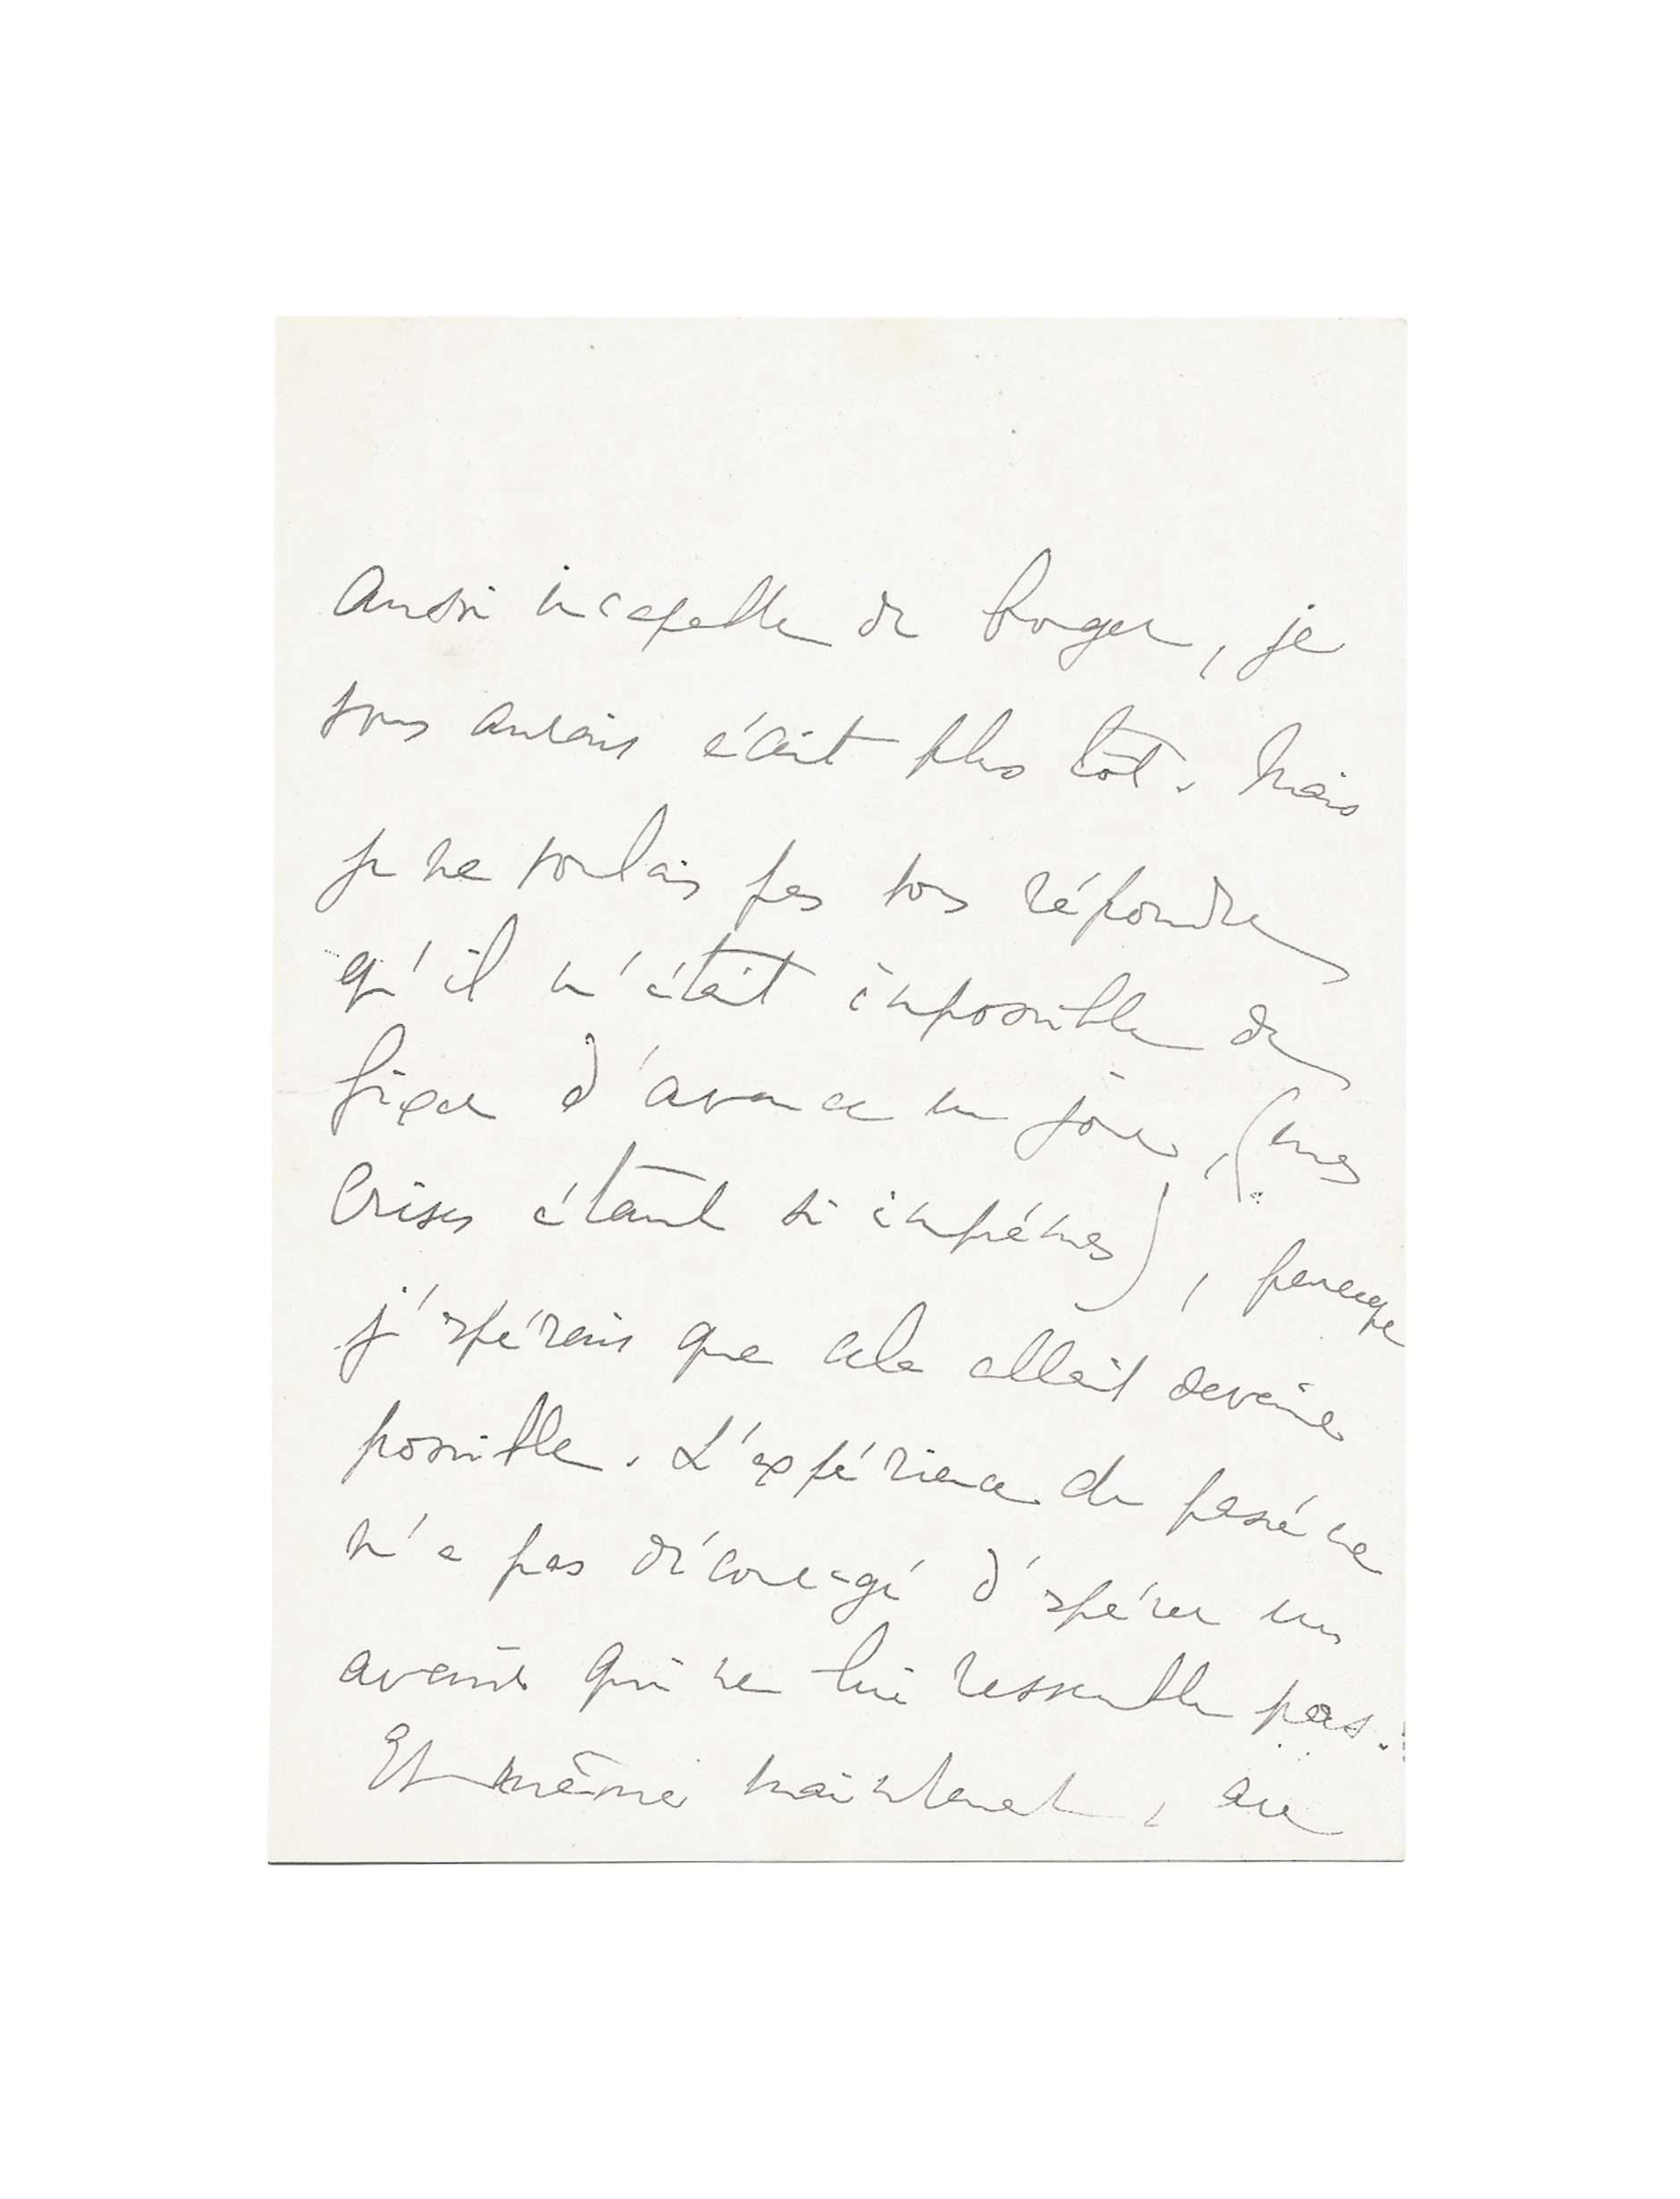 Aussi incapable de bouger, je
vous aurais écrit plus tôt. Mais
je ne voulais pas vous répondre
qu'il m'était impossible de
fixer d'avance un jour, (mes
crises étant si imprévues), parceque
j'espérais que cela allait devenir
possible. L'expérience du passé ne
m'a pas découragé d'espérer un
avenir qui ne lui ressemble pas.
Et même maintenant,